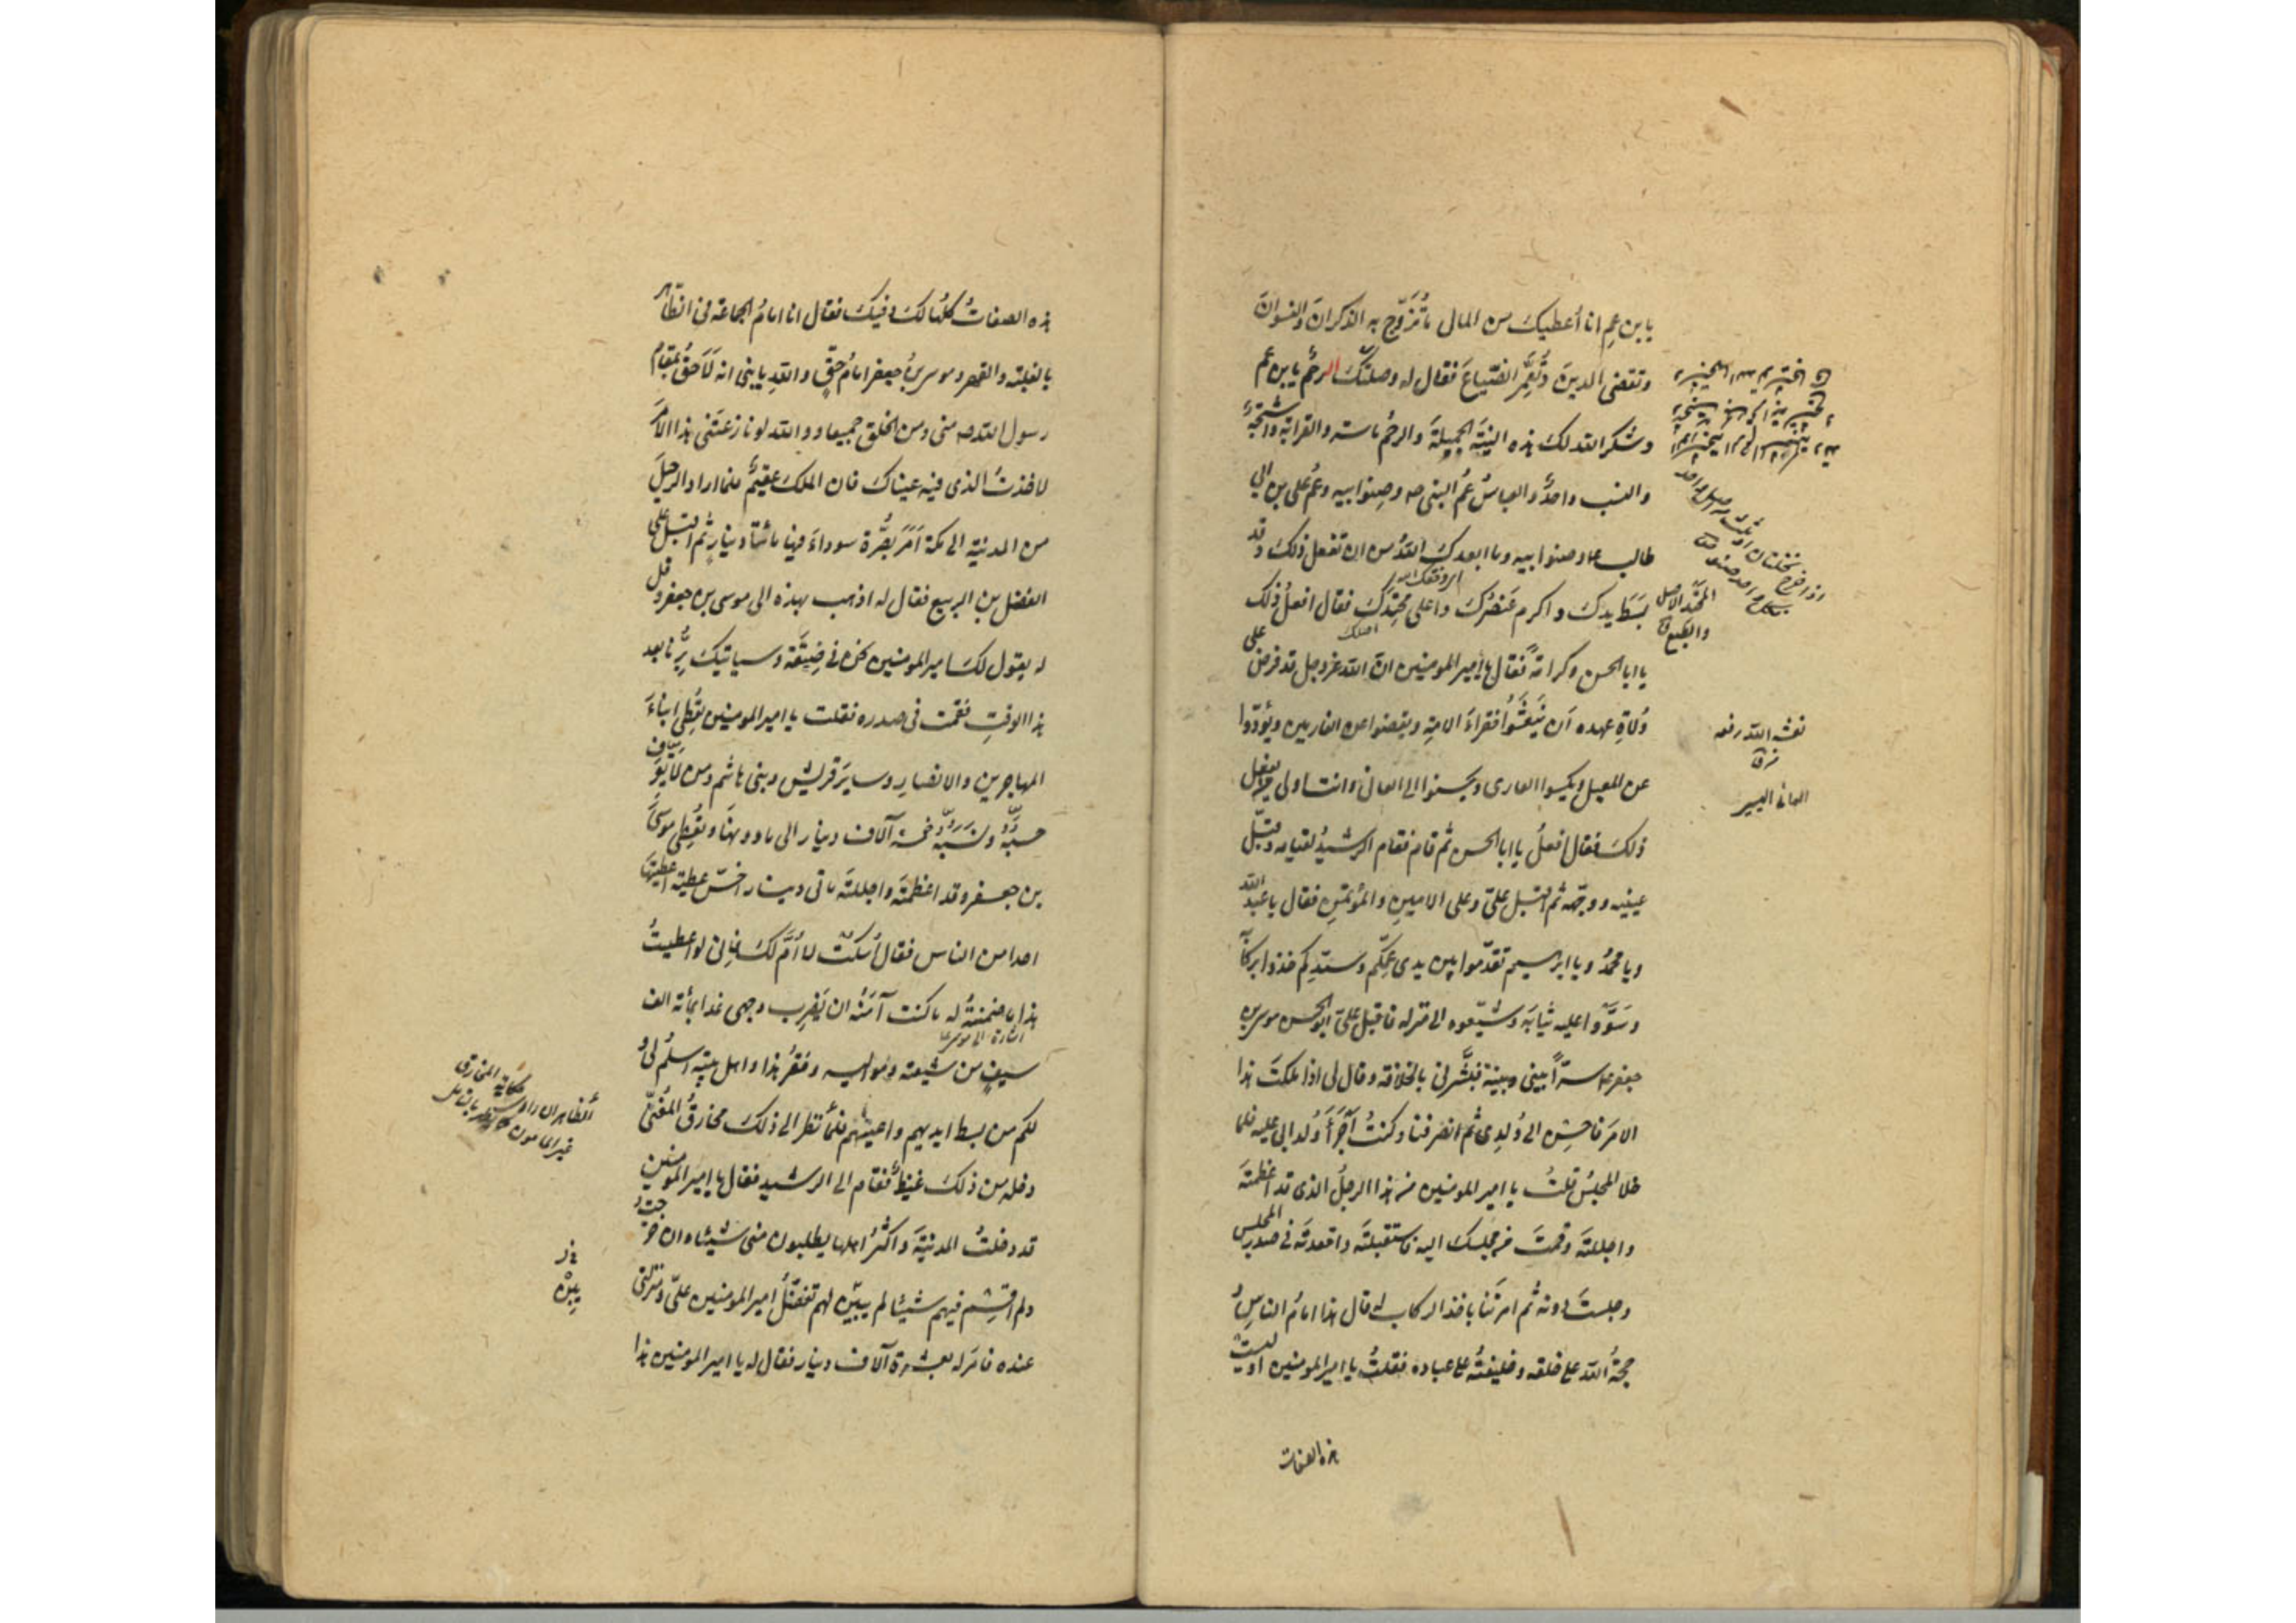 يا بن عم انا أعطيك من المال ما تُزَوّج به الذكرانَ والنسوانَ
وتقضى الدينَ وتُعَمِّر الضّياعَ فقال له وصلتكَ الرحمُ يا بن عم
وشكر الله لكَ هذه النيّة الجميلةَ والرحمُ ماسة والقرابة واشجةٌ
والنسب واحدٌ والعباسُ عمُّ النبى صه وصِنو ابيه وعمُّ على بن ابي
طالب ع وصنو ابيه وما ابعدكَ اللهُ من ان تفعل ذلكَ وقد
بسَطَ يدكَ واكرم عنصُرَكَ واعلى محتِدَكَ فقال افعلُ ذلك
يا ابا الحسن وكرامةً فقال يا أمير المومنين انّ الله عز وجل قد فرض على
وُلاةِ عهده اَن يُنعِشُوا فقراءَ الامةِ ويقضوا عن الغارمين ويؤدّوا
عن المعيل ويكسوا العارى ويحسنوا الى العانى وانت اولى من يفعل
ذلكَ فقال افعلُ يا ابا الحسن ثم قام فقام الرشيدُ لقيامه وقبّل
عينيه ووجهَه ثم اقبل علىّ وعلى الامين والمؤتمن فقال يا عبد الله
ويا محمدُ ويا ابراهيم تقدّموا بين يدى عمّكم وسيّدكم خذوا بركابه
وسَوّوا عليه ثيابَه وشيّعوه الى منزله فاقبل علىّ ابو الحسن موسى بن
جعفر ع سرّاً بينى وبينه فبشّرنى بالخلافة وقال لى اذا ملكتَ هذا
الامرَ فاحسِن الى وُلدِى ثم انصرفنا وكنتُ أجرَأَ وُلد ابى عليه فلما
خلا المجلسُ قلتُ يا امير المومنين من هذا الرجلُ الذى قد اعظمتَه
واجللتَه وقمتَ من مجلسك اليه فاستقبلتَه واقعدتَه فى صدر المجلس
وجلستَ دونه ثم امرتَنا باخذ الركاب له قال هذا امامُ الناسِ و
حجةُ الله على خلقه وخليفتُه على عباده فقلتُ يا امير المومنين اوليست
هذه الصفات
المحتد الاصل
والطبع ق
اصلك
نعشه الله رفعه
ق
العانى الاسير
هذه الصفاتُ كلُّها لكَ وفيكَ فقال انا امامُ الجماعة فى الظاهر
بالغلبة والقهر وموسى بنُ جعفر امامُ حقٍّ والله يا بنى انه لَاَحقُّ بمقام
رسول الله صه منى ومن الخلق جميعا ووالله لو نازعتَنى هذا الامرَ
لاخذتُ الذى فيه عيناكَ فان الملكَ عقيمٌ فلما اراد الرحيلَ
من المدينة الى مكة اَمَرَ بصُرّة سوداءَ فيها مائتا دينارٍ ثم اقبل على
الفضل بن الربيع فقال له اذهب بهذه الى موسى بن جعفر وقل
له يقول لكَ امير المومنين نحن فى ضِيقَة وسياتيكَ بِرُّنا بعد
هذا الوقتِ فقمت فى صدره فقلت يا امير المومنين تُعطِى ابناءَ
المهاجرين والانصارِ وسايرَ قريش وبنى هاشم ومن لا يُعرف
حسبُه ونسَبُه خمسة آلاف دينار الى ما دونها وتُعطِى موسى
بن جعفر وقد اعظمتَه واجللتَه مائتى دينار اخسَّ عطية اعطيتَها
احدا من الناس فقال اُسكُت لا اُمَّ لكَ فانى لو اعطيتُ
هذا ما ضمنتُه له ما كنت آمَنُه ان يَضرِب وجهى غدا بمائة الف
سيفٍ من شيعته ومَواليه وفقرُ هذا واهل بيتِه اَسلمُ لى و
لكم من بسط ايديهم واعينهم فلما نظر الى ذلكَ مخارقُ المُغنّى
دخله من ذلكَ غيظٌ فقام الى الرشيد فقال يا امير المومنين
قد دخلتُ المدينةَ واكثرُ اهلها يطلبون منى شيئا وان خرجتُ و
لم اَقسِم فيهم شيئا لم يتبيّن لهم تفضّلُ امير المومنين علىّ ومنزلتى
عنده فامَر له بعشرة آلاف دينار فقال له يا امير المومنين هذا